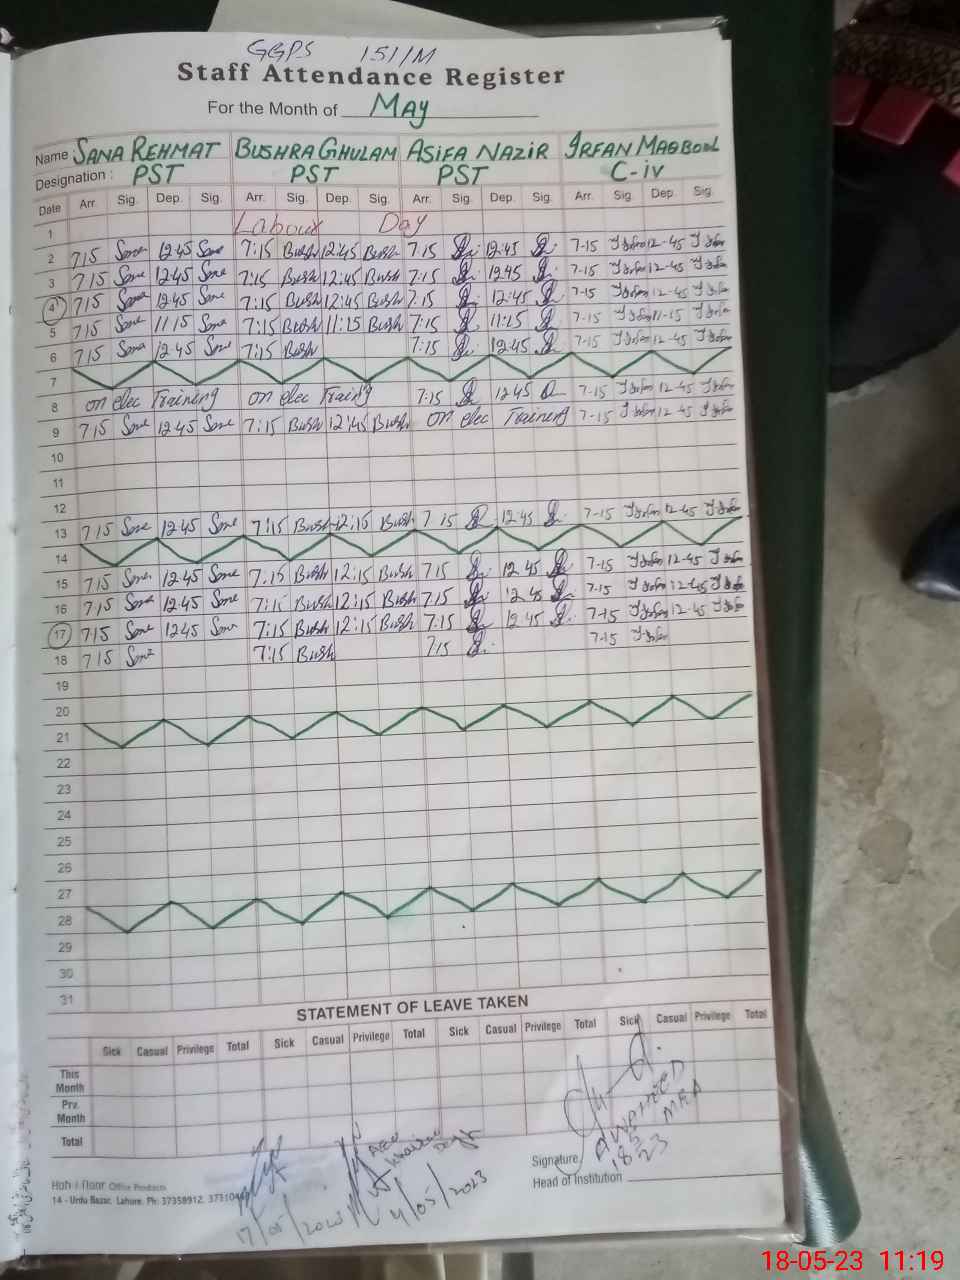 GGPS 151/M
Staff Attendance Register
For the Month of May
Name SANA REHMAT BUSHRA GHULAM ASIFA NAZIR IRFAN MAQBOOL
Designation : PST PST PST C-iv
Date Arr. Sig. Dep. Sig. Arr. Sig. Dep. Sig. Arr. Sig. Dep. Sig. Arr. Sig. Dep. Sig.
1 Labour Day
2 715 Sana 12:45 Sana 7:15 Bush 12:45 Bush 7:15 12:45 7-15 Irfan 12-45 Irfan
3 715 Sana 12:45 Sana 7:15 Bush 12:45 Bush 7:15 12:45 7-15 Irfan 12-45 Irfan
4 715 Sana 12:45 Sana 7:15 Bush 12:45 Bush 7:15 12:45 7-15 Irfan 12-45 Irfan
5 715 Sana 11:15 Sana 7:15 Bush 11:15 Bush 7:15 11:15 7-15 Irfan 11-15 Irfan
6 715 Sana 12:45 Sana 7:15 Bush 7:15 12:45 7-15 Irfan 12-45 Irfan
7
8 on elec Training on elec Training 7:15 12:45 7-15 Irfan 12-45 Irfan
9 715 Sana 12:45 Sana 7:15 Bush 12:45 Bush on elec Training 7-15 Irfan 12-45 Irfan
10
11
12
13 715 Sana 12:45 Sana 7:15 Bush 12:15 Bush 7 15 12:45 7-15 Irfan 12-45 Irfan
14
15 715 Sana 12:45 Sana 7:15 Bush 12:15 Bush 715 12:45 7-15 Irfan 12-45 Irfan
16 715 Sana 12:45 Sana 7:15 Bush 12:15 Bush 7:15 12:45 7-15 Irfan 12-45 Irfan
17 715 Sana 1245 Sana 7:15 Bush 12:15 Bush 7:15 12:45 7-15 Irfan 12-45 Irfan
18 715 Sana 7:15 Bush 7:15 7-15 Irfan
19
20
21
22
23
24
25
26
27
28
29
30
31
STATEMENT OF LEAVE TAKEN
Sick Casual Privilege Total Sick Casual Privilege Total Sick Casual Privilege Total Sick Casual Privilege Total
This Month
Prv. Month
Total
AWAHEED
MEA
18 5 23
Signature
Head of Institution
17/05/2023
4/05/2023
Office Products
14 - Urdu Bazar, Lahore. Ph: 37358912,
18-05-23 11:19